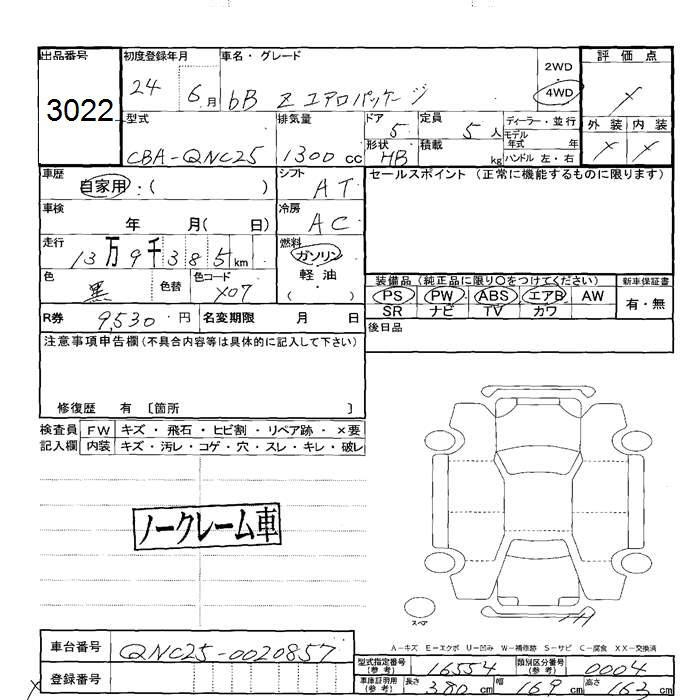 出品番号 初度登録年月 車名・グレード 2WD 評価点
3022 24 6月 bB Z エアロパッケージ 4WD ×
型式 排気量 ドア 定員 ディーラー・並行 外装 内装
5 5人 モデル年式 年
CBA-QNC25 1300cc 形状 HB 積載 kg ハンドル 左・右 × ×
車歴 自家用:( ) シフト AT セールスポイント(正常に機能するものに限ります)
車検 年 月( 日) 冷房 AC
走行 13万9千385km 燃料 ガソリン
軽油
( )
色 黒 色替 色コード X07
装備品(純正品に限り○をつけてください) 新車保証書
PS PW ABS エアB AW 有・無
SR ナビ TV カワ
R券 9,530円 名変期限 月 日
後日品
注意事項申告欄(不具合内容等は具体的に記入して下さい)
修復歴 有 [箇所 ]
検査員 FW キズ・飛石・ヒビ割・リペア跡・×要
記入欄 内装 キズ・汚レ・コゲ・穴・スレ・キレ・破レ
ノークレーム車
スペア
A-キズ E-エクボ U-凹み W-補修跡 S-サビ C-腐食 XX-交換済
車台番号 QNC25-0020857
登録番号
型式指定番号(参考) 16554 類別区分番号(参考) 0004
車庫証明用(参考) 長さ 380cm 幅 169cm 高さ 163cm